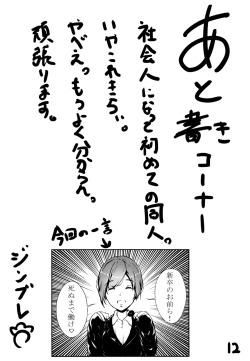 あと書きコーナー
社会人になって初めての同人。
いやこれきちぃ。
やべえっもうよく分からん。
頑張ります。
今回の一言
新卒のお前ら!
死ぬまで働け♡
ジンブレ
12